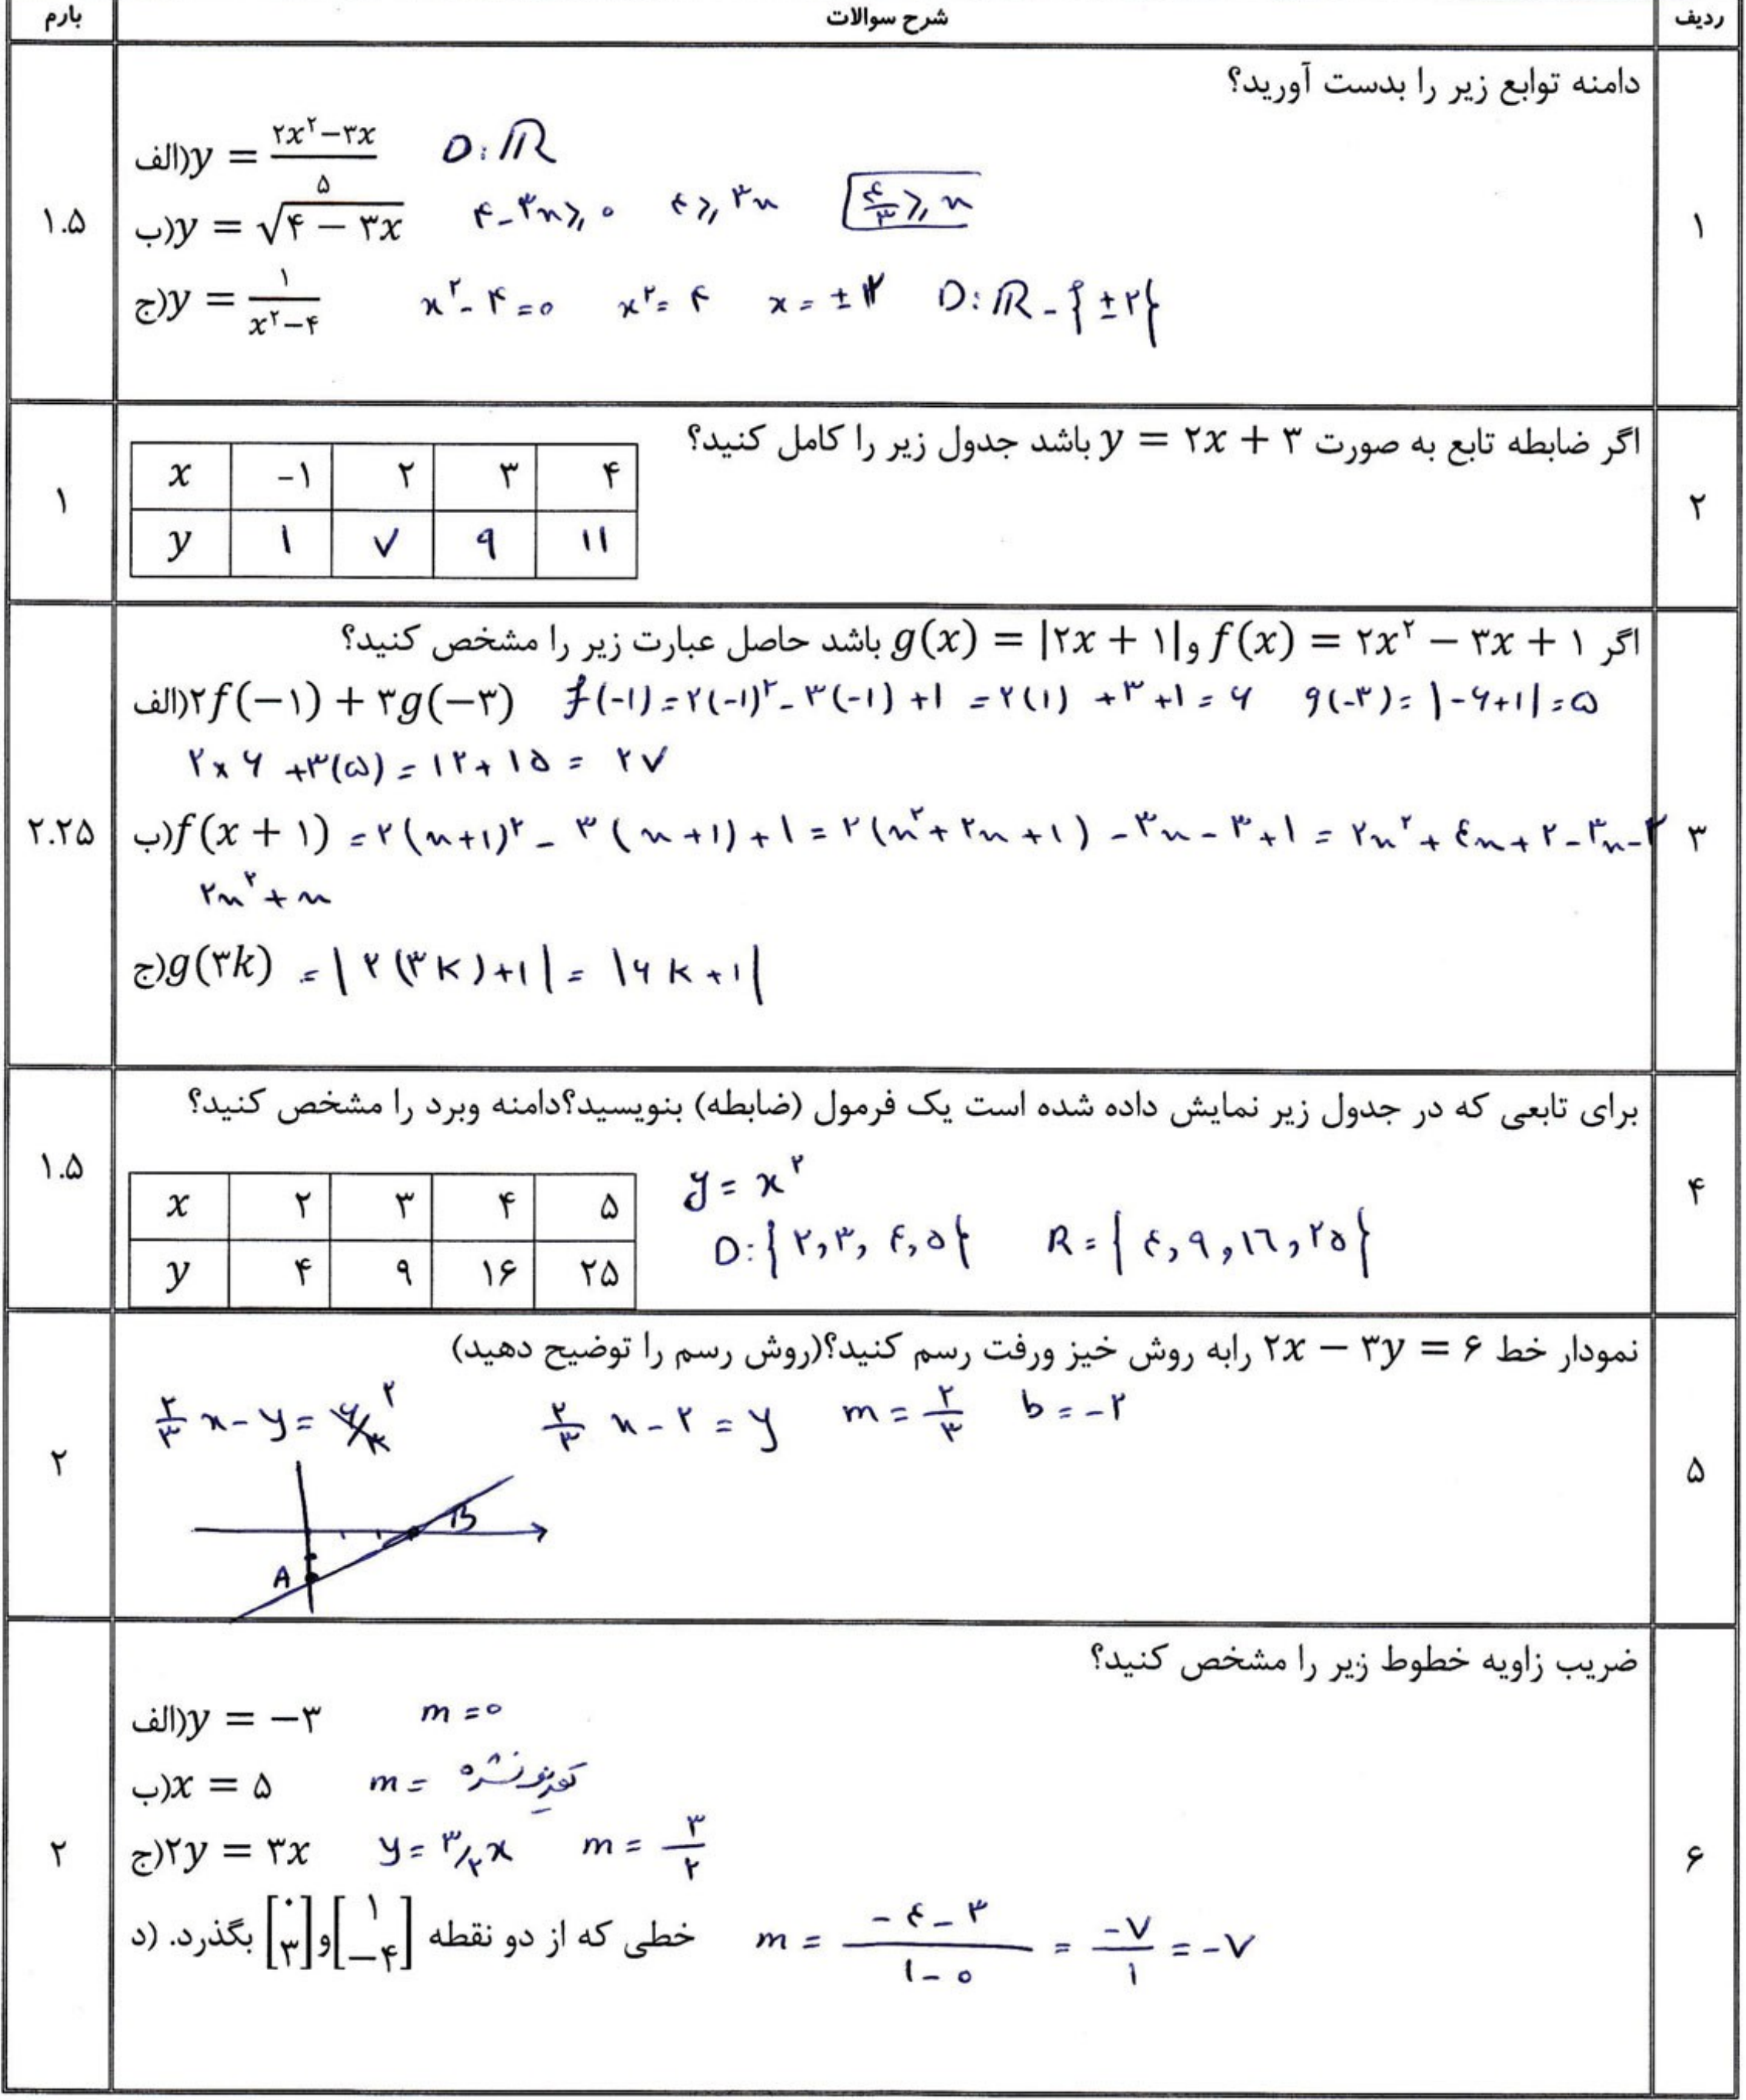 ردیف شرح سوالات بارم
۱ دامنه توابع زیر را بدست آورید؟ ۱.۵
الف) y = (۲x² − ۳x)/۵ D: ℝ
ب) y = √(۴ − ۳x) ۴ − ۳x ⩾ ۰ ۴ ⩾ ۳x ۴/۳ ⩾ x
ج) y = ۱/(x² − ۴) x² − ۴ = ۰ x² = ۴ x = ±۲ D: ℝ − {±۲}
۲ اگر ضابطه تابع به صورت y = ۲x + ۳ باشد جدول زیر را کامل کنید؟ ۱
x −۱ ۲ ۳ ۴
y ۱ ۷ ۹ ۱۱
۳ اگر f(x) = ۲x² − ۳x + ۱ و g(x) = |۲x + ۱| باشد حاصل عبارت زیر را مشخص کنید؟ ۲.۲۵
الف) ۲f(−۱) + ۳g(−۳) f(−۱) = ۲(−۱)² − ۳(−۱) + ۱ = ۲(۱) + ۳ + ۱ = ۶ g(−۳) = |−۶+۱| = ۵
۲×۶ + ۳(۵) = ۱۲ + ۱۵ = ۲۷
ب) f(x + ۱) = ۲(x+۱)² − ۳(x+۱) + ۱ = ۲(x² + ۲x + ۱) − ۳x − ۳ + ۱ = ۲x² + ۴x + ۲ − ۳x − ۲
۲x² + x
ج) g(۳k) = |۲(۳k)+۱| = |۶k+۱|
۴ برای تابعی که در جدول زیر نمایش داده شده است یک فرمول (ضابطه) بنویسید؟دامنه وبرد را مشخص کنید؟ ۱.۵
x ۲ ۳ ۴ ۵
y ۴ ۹ ۱۶ ۲۵
y = x²
D: {۲, ۳, ۴, ۵} R = {۴, ۹, ۱۶, ۲۵}
۵ نمودار خط ۲x − ۳y = ۶ رابه روش خیز ورفت رسم کنید؟(روش رسم را توضیح دهید) ۲
۲/۳ x − y = ۶/۳ ۲ ۲/۳ x − ۲ = y m = ۲/۳ b = −۲
B
A
۶ ضریب زاویه خطوط زیر را مشخص کنید؟ ۲
الف) y = −۳ m = ۰
ب) x = ۵ m = تعریف نشده
ج) ۲y = ۳x y = ۳/۲ x m = ۳/۲
د) خطی که از دو نقطه [۱ −۴] و [۰ ۳] بگذرد. m = (−۴ − ۳)/(۱ − ۰) = −۷/۱ = −۷